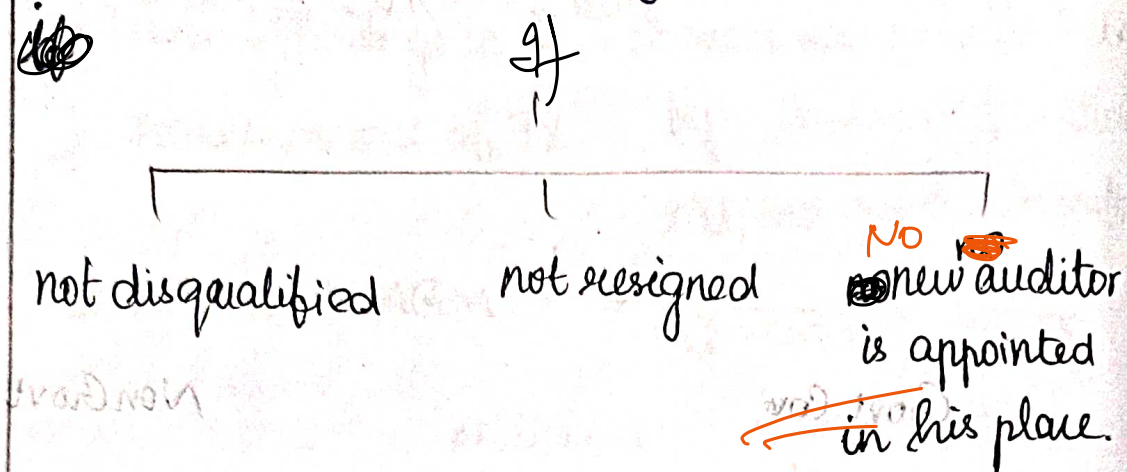 If
not disqualified not resigned NO new auditor
is appointed
in his place.